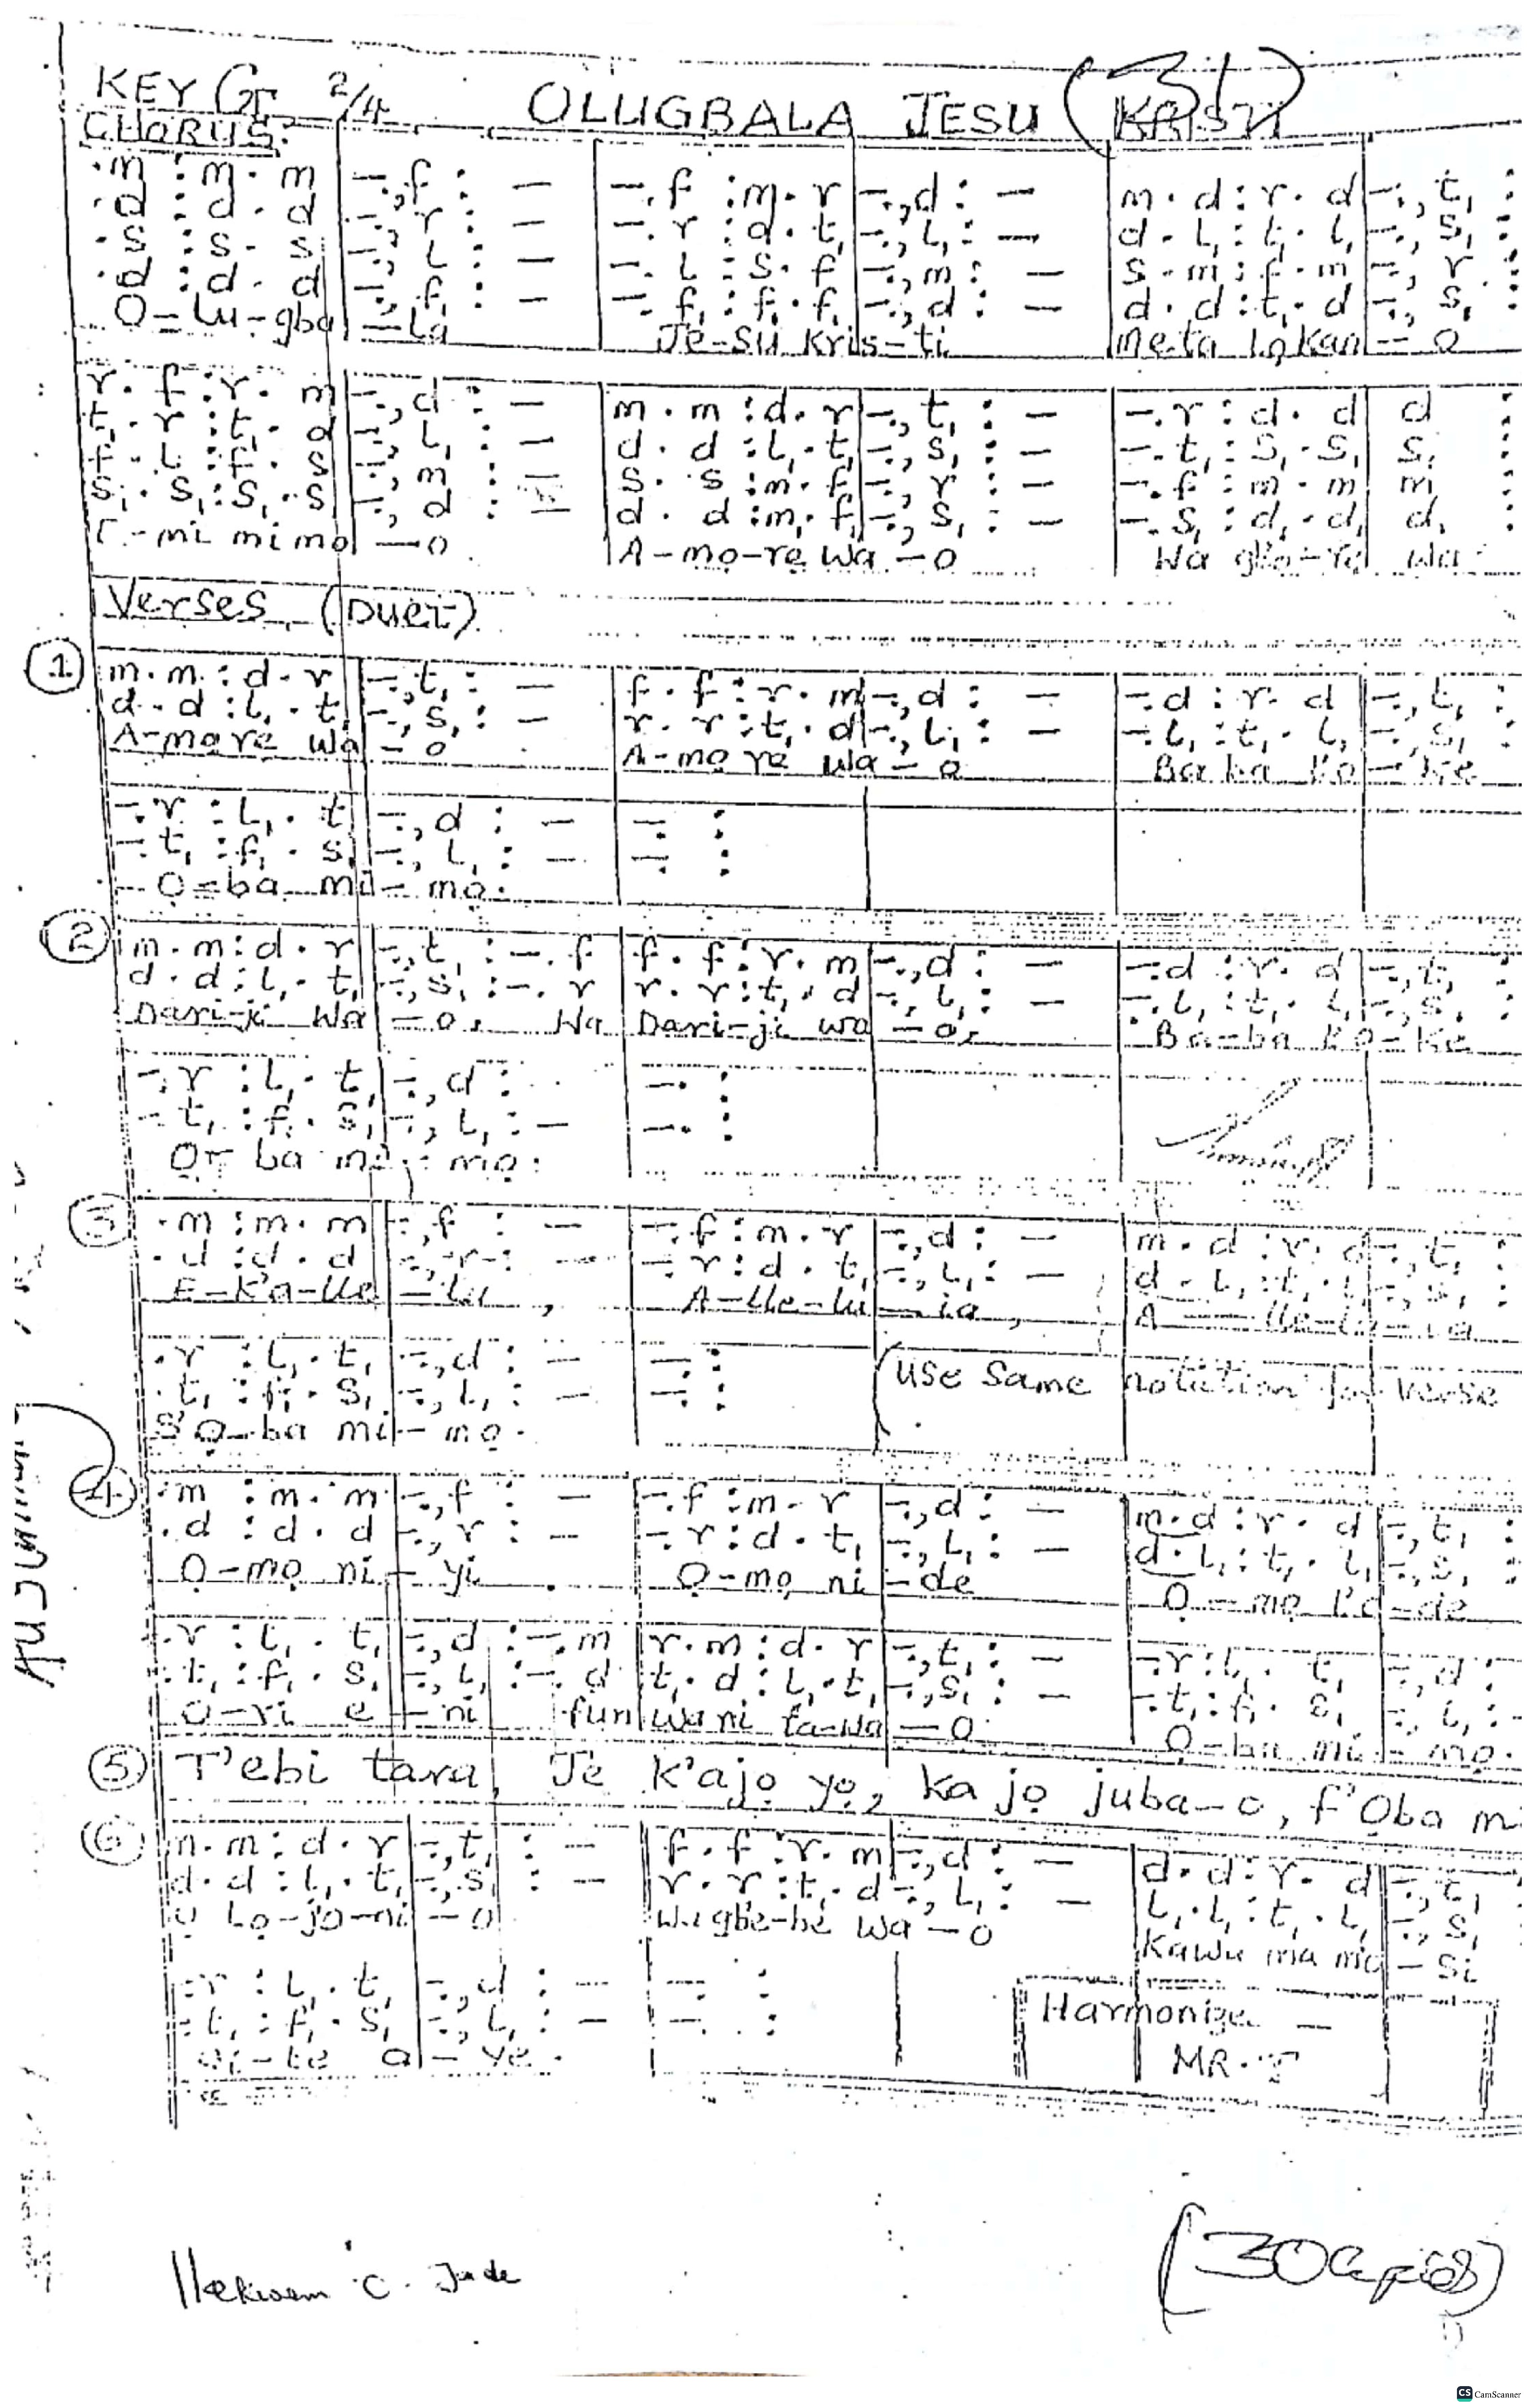 KEY G 2/4 OLUGBALA JESU KRISTI (31)
CHORUS:
.m : m . m | -.,f : - | -.f : m . r | -.,d : - | m . d : r . d | -., t, :
.d : d . d | -.,r : - | -.r : d . t, | -.,l, : - | d . l, : t, . l, | -., s, :
.s : s . s | -.,l : - | -.l : s . f | -.,m : - | s . m : f . m | -., r :
.d : d . d | -.,f, : - | -.f, : f, . f, | -.,d : - | d . d : t, . d | -., s, :
O-lu-gba | -la | Je-su Kris-ti | Meta lọkan - o
r . f : r . m | -.,d : - | m . m : d . r | -.,t, : - | -.r : d . d | d :
t, . r : t, . d | -.,l, : - | d . d : l, . t, | -.,s, : - | -.t, : s, . s, | s, :
f . l : f . s | -., m : - | s . s : m . f | -., r : - | -.f : m . m | m :
s, . s, : s, . s | -., d : - | d . d : m, . f, | -., s, : - | -.s, : d, . d, | d, :
-mi mimo - o | A-mo-re wa - o | Wa gbo-re wa
Verses, (DUET)
(1) m . m : d . r | -.,t, : - | f . f : r . m | -.,d : - | -.d : r . d | -., t, :
d . d : l, . t, | -.,s, : - | r . r : t, . d | -.,l, : - | -.l, : t, . l, | -., s, :
A-more wa - o | A-mo re wa - o | Ba ba l'o - ke
-.r : l, . t, | -.,d : - | -. :
-.t, : f, . s, | -., l, : - | -. :
Ọ-ba mi - mọ.
(2) m . m : d . r | -.,t, : -. f | f . f : r . m | -.,d : - | -.d : r . d | -., t, :
d . d : l, . t, | -.,s, : -. r | r . r : t, . d | -., l, : - | -.l, : t, . l, | -., s, :
Dari-ji wa - o, Wa | Dari-ji wa - o, | Ba-ba l'o-ke
-.r : l, . t, | -., d : | -. :
-.t, : f, . s, | -., l, : - | -. :
Ọ- ba mi - mọ.
(3) .m : m . m | -.,f : - | -.f : m . r | -.,d : - | m . d : r . d | -., t, :
.d : d . d | -.,r : - | -.r : d . t, | -., l, : - | d . l, : t, . l, | -., s, :
E-k'a-lle - lu, | A-lle-lu - ia, | A - lle-lu-ia
.r : l, . t, | -.,d : - | -. : (Use same notation for verse
.t, : f, . s, | -., l, : - | -. :
S'Ọ-ba mi - mọ.
(4) .m : m . m | -.,f : - | -.f : m . r | -.,d : - | m . d : r . d | -., t, :
.d : d . d | -., r : - | -.r : d . t, | -., l, : - | d . l, : t, . l, | -., s, :
Ọ-mọ ni - yi | Ọ-mọ ni - de | Ọ - mọ l'o-de
.r : l, . t, | -.,d : -. m | r . m : d . r | -.,t, : - | -.r : l, . t, | -., d :
.t, : f, . s, | -., l, : -. d | t, . d : l, . t, | -., s, : - | -.t, : f, . s, | -., l, : -
O-ri e - ni fun | wa ni ta-wa - o | Ọ-ba mi - mọ.
(5) T'ebi tara, Je K'ajọ yọ, ka jọ juba-o, f'Ọba mi
(6) m . m : d . r | -., t, : - | f . f : r . m | -.,d : - | d . d : r . d | -., t,
d . d : l, . t, | -., s, : - | r . r : t, . d | -., l, : - | l, . l, : t, . l, | -., s,
O Lo-jo-ni - o | Wa gbe-be wa - o | Kawu ma mo - si
-.r : l, . t, | -., d : - | -. :
-.t, : f, . s, | -., l, : - | -. :
-le a - ye.
Harmonize -
MR. T
C. Jude
(30 Copies)
CS CamScanner